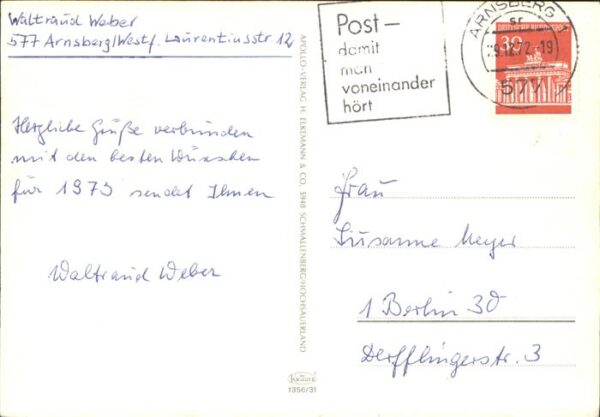 Waltraud Weber
577 Arnsberg/Westf. Laurentiusstr 12
Herzliche Grüße verbunden
mit den besten Wünschen
für 1973 sendet Ihnen
Waltraud Weber
APOLLO-VERLAG H. ELKEMANN & CO., 5948 SCHMALLENBERG/HOCHSAUERLAND
1356/31
Post –
damit
man
voneinander
hört
ARNSBERG 1
sr
9.12.72-19
577
30
Frau
Susanne Meyer
1 Berlin 30
Derfflingerstr. 3